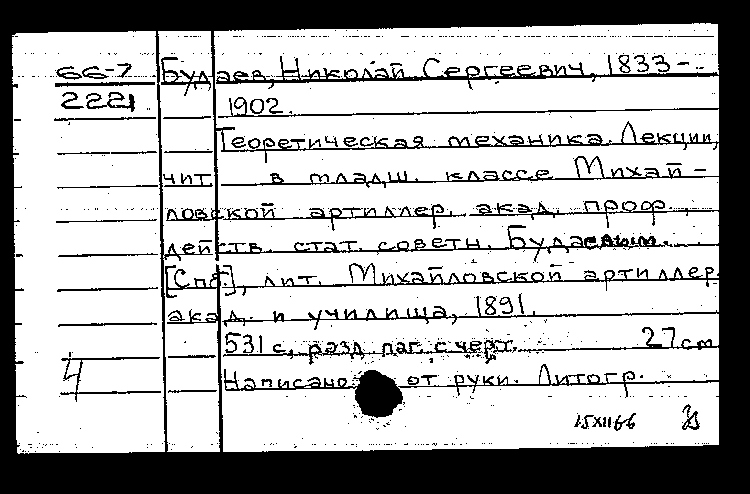 66-7 Будаев, Николай Сергеевич, 1833 -
2221 1902.
Теоретическая механика. Лекции,
чит. в младш. классе Михай-
ловской артиллер. акад. проф.,
действ. стат. советн. Будаевым.
[Спб.], лит. Михайловской артиллер.
акад. и училища, 1891.
531 с. разд. паг. с черт. 27 см
4 Написано от руки. Литогр.
15XII66